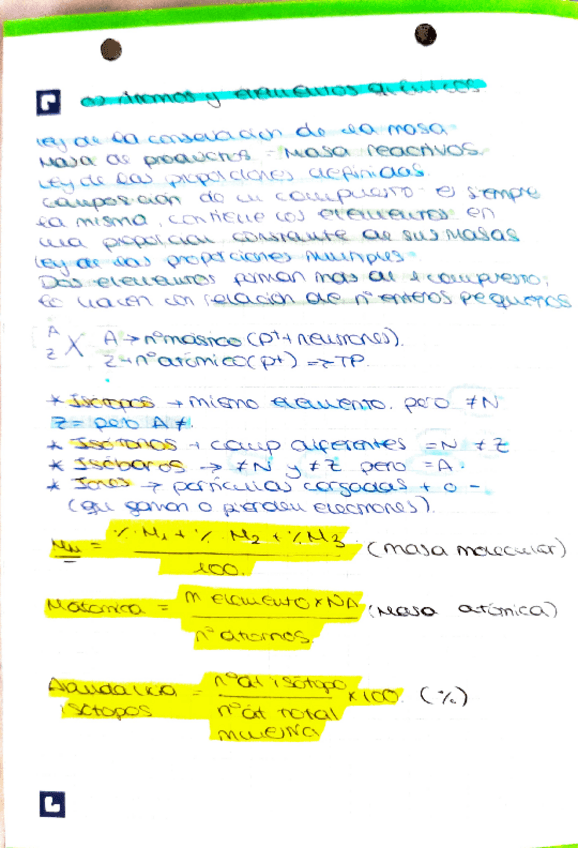 Átomos y elementos químicos
Ley de la conservación de la masa
Masa de productos = Masa reactivos.
Ley de las proporciones definidas.
Composición de un compuesto es siempre
la misma, contiene los elementos en
una proporción constante de sus masas
Ley de las proporciones múltiples.
Dos elementos forman mas de 1 compuesto;
lo hacen con relación de nº enteros pequeños
A
Z X A → nº másico (p⁺ + neutrones).
Z → nº atómico (p⁺) => TP.
* Isótopos → mismo elemento. pero ≠N
Z = pero A ≠.
* Isótonos → comp diferentes = N ≠ Z
* Isóbaros → ≠N y ≠Z pero = A.
* Iones → partículas cargadas + o -
(que ganan o pierden electrones).
= % M₁ + % M₂ + % M₃ (masa molecular)
100.
Matómica = m elemento × NA (Masa atómica)
nº átomos.
Abundancia isótopos = nº át isótopo × 100. (%)
nº át total
muestra